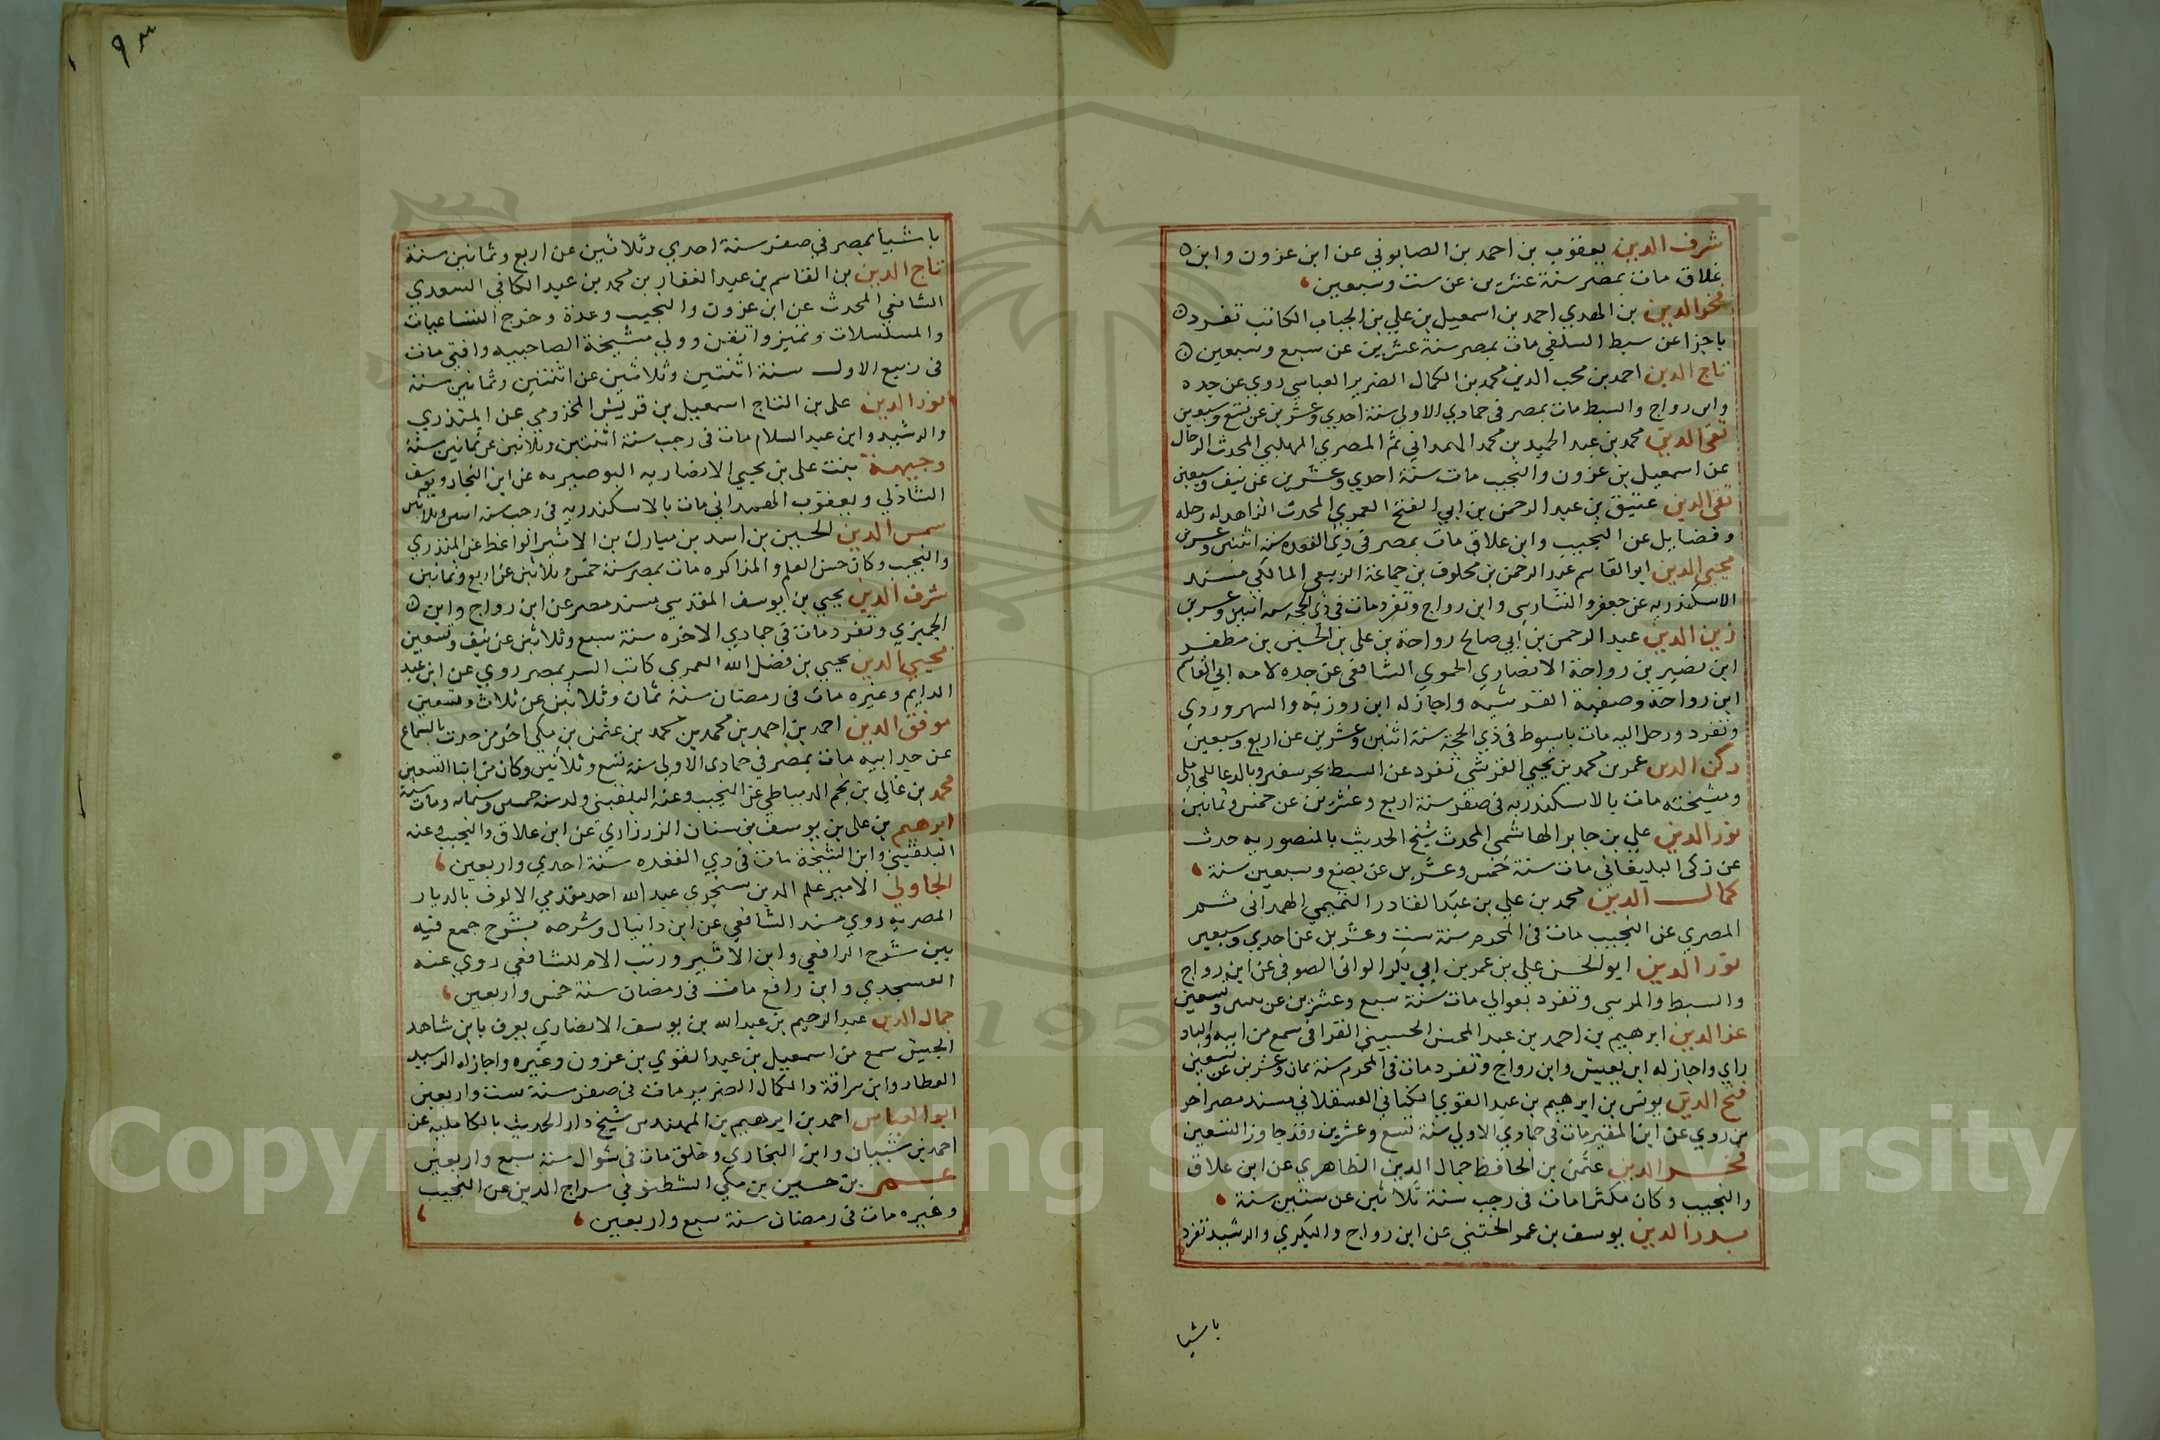 شرف الدين يعقوب بن احمد بن الصابوني عن ابن عزون وابن
علاق مات بمصر سنة عشرين عن ست وسبعين
فخر الدين بن المهدي احمد بن اسمعيل بن علي بن الجباب الكاتب تفرد
باجزا عن سبط السلفي مات بمصر سنة عشرين عن سبع وسبعين
تاج الدين احمد بن محب الدين محمد بن الكمال الضرير العباسي روي عن جده
وابن رواج والسبط مات بمصر في جمادي الاولي سنة احدي وعشرين عن تسع وسبعين
تقي الدين محمد بن عبد الحميد بن محمد الهمداني ثم المصري المهلبي المحدث الرحال
عن اسمعيل بن عزون والنجيب مات سنة احدي وعشرين عن نيف وسبعين
تقي الدين عتيق بن عبد الرحمن بن ابي الفتح العمري المحدث الزاهد له رحله
وفضايل عن النجيب وابن علاق مات بمصر في ذي القعده سنة اثنتين وعشرين
محيي الدين ابو القاسم عبد الرحمن بن مخلوف بن جماعة الربعي المالكي مسند
الاسكندريه عن جعفر والتسارسي وابن رواج وتفرد مات في ذي الحجه سنه اثنين وعشرين
زين الدين عبد الرحمن بن ابي صالح رواحة بن علي بن الحسين بن مظفر
ابن نصير بن رواحة الانصاري الحموي الشافعي عن جده لامه ابي القاسم
ابن رواحة وصفية القرشيه واجاز له ابن روزبة والسهروردي
وتفرد ورحل اليه مات باسيوط في ذي الحجة سنة اثنين وعشرين عن اربع وسبعين
ركن الدين عمر بن محمد بن يحيي القرشي تفرد عن السبط بجز سفين وبالدعا للمحاملي
ومشيخته مات بالاسكندريه في صفر سنة اربع وعشرين عن خمس وثمانين
نور الدين علي بن جابر الهاشمي المحدث شيخ الحديث بالمنصوريه حدث
عن زكي البليقاني مات سنة خمس وعشرين عن بضع وسبعين سنة
كمال الدين محمد بن علي بن عبد القادر التميمي الهمداني ثم
المصري عن النجيب مات في المحرم سنة ست وعشرين عن احدي وسبعين
نور الدين ابو الحسن علي بن عمر بن ابي بكر الواني الصوفي عن ابن رواج
والسبط والمرسي وتفرد بعوالي مات سنة سبع وعشرين عن وتسعين
عز الدين ابرهيم بن احمد بن عبد المحسن الحسيني الغرافي سمع من ابيه
راي واجاز له ابن يعيش وابن رواج وتفرد مات في المحرم سنة ثمان وعشرين عن تسعين
فتح الدين يونس بن ابرهيم بن عبد القوي الكناني العسقلاني مسند مصر اخر
من روي عن ابن المقير مات في جمادي الاولي سنة تسع وعشرين وقد جاوز التسعين
فخر الدين عثمن بن الحافظ جمال الدين الظاهري عن ابن علاق
والنجيب وكان مكثرا مات في رجب سنة ثلاثين عن ستين سنة
بدر الدين يوسف بن عمر الختني عن ابن رواج والبكري والرشيد تفرد
باشيا
٩٣
باشيا بمصر في صفر سنة احدي وثلاثين عن اربع وثمانين سنة
تاج الدين بن القاسم بن عبد الغفار بن محمد بن عبد الكافي السعدي
الشافعي المحدث عن ابن عزون والنجيب وعدة وخرج التساعيات
والمسلسلات وتميز واتقن وولي مشيخة الصاحبيه وافتي مات
في ربيع الاول سنة اثنتين وثلاثين عن اثنتين وثمانين سنة
نور الدين علي بن التاج اسمعيل بن قريش المخزومي عن المنذري
والرشيد وابن عبد السلام مات في رجب سنة اثنتين وثلاثين عن ثمانين سنة
وجيهة بنت علي بن يحيي الانصاريه البوصيريه عن ابن النجار ويوسف
الشاذلي ويعقوب الهمداني مات بالاسكندريه في رجب سنه اثنين وثلاثين
شمس الدين الحسين بن اسد بن مبارك بن الاثير الواعظ عن المنذري
والنجيب وكان حسن العلم والمذاكره مات بمصر سنة خمس وثلاثين عن اربع وثمانين
شرف الدين يحيي بن يوسف المقدسي مسند مصر عن ابن رواج وابن
الجميزي وتفرد مات في جمادي الاخره سنة سبع وثلاثين عن نيف وتسعين
محيي الدين يحيي بن فضل الله العمري كاتب السر بمصر روي عن ابن عبد
الدايم وغيره مات في رمضان سنة ثمان وثلاثين عن ثلاث وتسعين
موفق الدين احمد بن احمد بن محمد بن محمد بن عثمن بن مكي اخر من حدث بالسماع
عن جد ابيه مات بمصر في جمادى الاولي سنة تسع وثلاثين وكان من ابنا التسعين
محمد بن غالي بن نجم الدمياطي عن النجيب وعنه البلقيني ولد سنة خمسين وستمائه ومات سنة
ابرهيم بن علي بن يوسف بن سنان الزرزاري عن ابن علاق والنجيب وعنه
البلقيني وابن الشيخة مات في ذي القعده سنة احدي واربعين
الجاولي الامير علم الدين سنجري عبد الله احد مقدمي الالوف بالديار
المصريه روي مسند الشافعي عن ابن دانيال وشرحه بشرح جمع فيه
بين شرح الرافعي وابن الاثير ورتب الام للشافعي روي عنه
العسجدي وابن رافع مات في رمضان سنة خمس واربعين
جمال الدين عبد الرحيم بن عبد الله بن يوسف الانصاري يعرف بابن شاهد
الجيش سمع من اسمعيل بن عبد القوي بن عزون وغيره واجاز له الرشيد
العطار وابن سراقة والكمال الضرير مات في صفر سنة ست واربعين
ابو العباس احمد بن ابرهيم بن المهندس شيخ دار الحديث بالكامليه عن
احمد بن شيبان وابن البخاري وخلق مات في شوال سنة سبع واربعين
عمر بن حسين بن مكي الشطنوفي سراج الدين عن النجيب
وغيره مات في رمضان سنة سبع واربعين
Copyright © King Saud University
1957